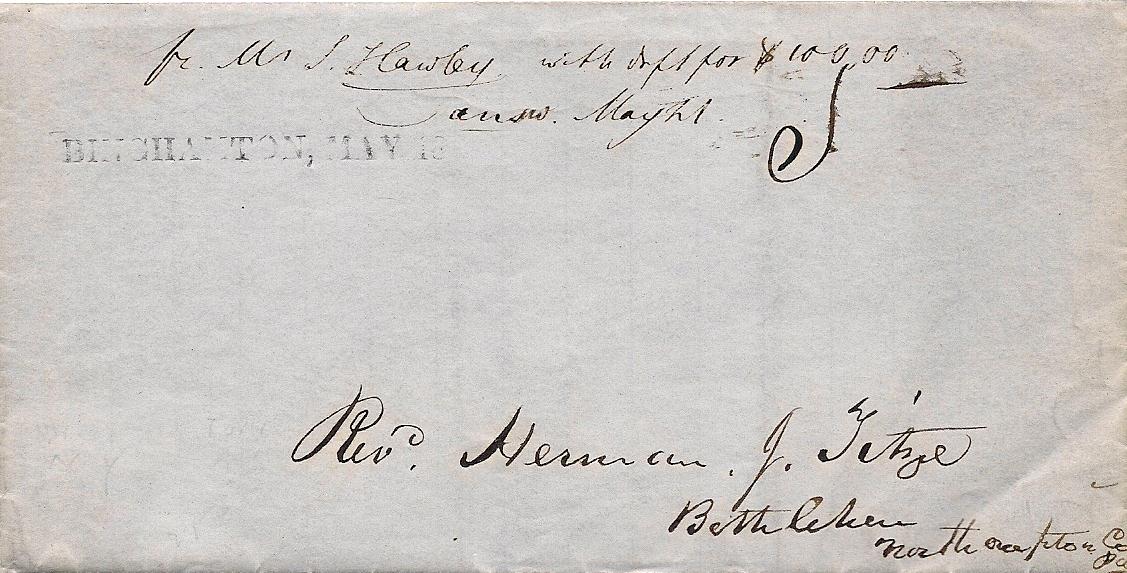 fr. Mr S. Hawley with drft for $100,00
answ. May
BINGHAMTON, MAY 18
5
Revd. Herman J. Titze
Bethlehem
Northampton Co
Pa